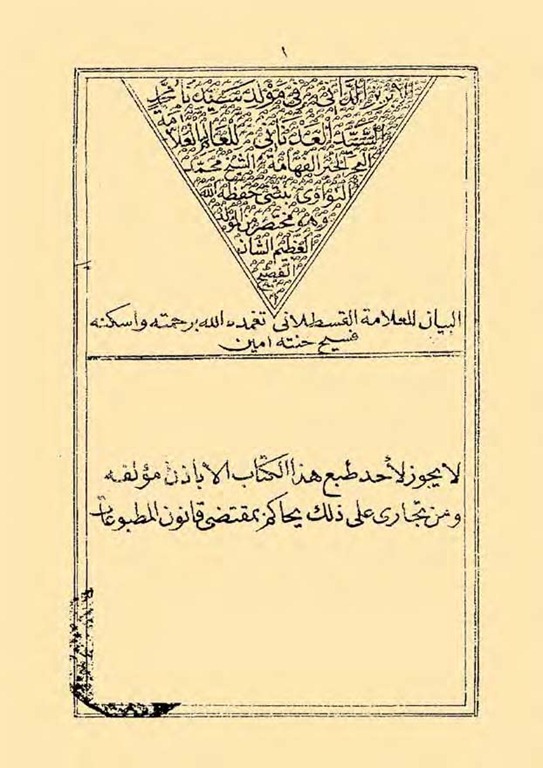 ١
الابريز الداني في مولد سيدنا محمد
السيد العدناني للعالم العلامة
الحبر الفهامة الشيخ محمد
النواوي بنتني حفظه الله
وهو مختصر من المولد
العظيم الشان
الفصيح
البيان للعلامة القسطلاني تغمده الله برحمته واسكنه
فسيح جنته امين
لا يجوز لأحد طبع هذا الكتاب الا باذن مؤلفه
ومن تجارى على ذلك يحاكم بمقتضى قانون المطبوعات